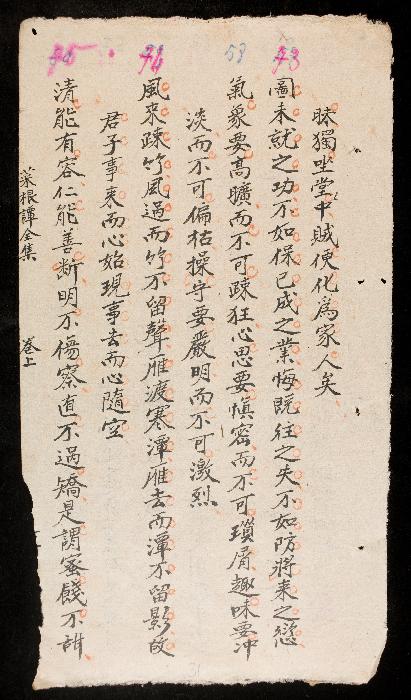 昧獨坐堂中賊便化為家人矣
圖未就之功不如保已成之業悔既往之失不如防將来之愆
氣象要高曠而不可疎狂心思要慎密而不可瑣屑趣味要冲
淡而不可偏枯操守要嚴明而不可激烈
風来疎竹風過而竹不留聲雁渡寒潭雁去而潭不留影故
君子事来而心始現事去而心隨空
清能有容仁能善斷明不傷察直不過矯是謂蜜餞不甜
菜根譚全集 卷上
73
58
74
75